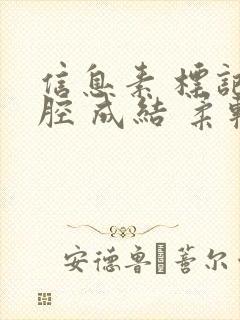 信息素 標記
腔 成結 柔
安德魯 蓍尔